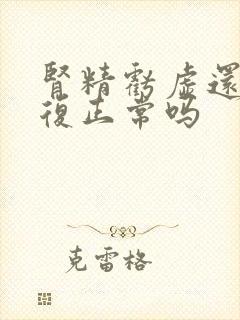 腎精虧虛還
復正常吗
克雷格